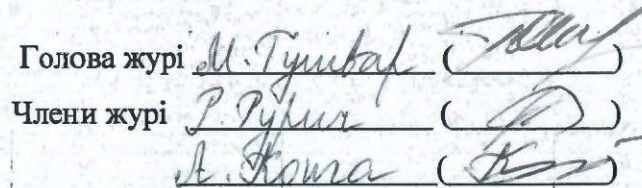 Голова журі М. Гушвар ( )
Члени журі Р. Рукич ( )
А. Конга ( )